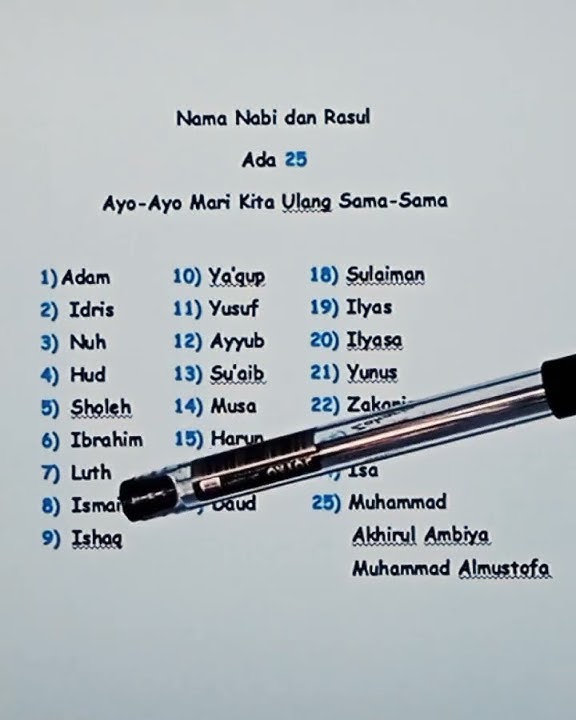 Nama Nabi dan Rasul
Ada 25
Ayo-Ayo Mari Kita Ulang Sama-Sama
1) Adam
2) Idris
3) Nuh
4) Hud
5) Sholeh
6) Ibrahim
7) Luth
8)
9) Ishaq
10) Ya'qup
11) Yusuf
12) Ayyub
13) Su'aib
14) Musa
15) Harun
Daud
18) Sulaiman
19) Ilyas
20) Ilyasa
21) Yunus
22)
Isa
25) Muhammad
Akhirul Ambiya
Muhammad Almustofa